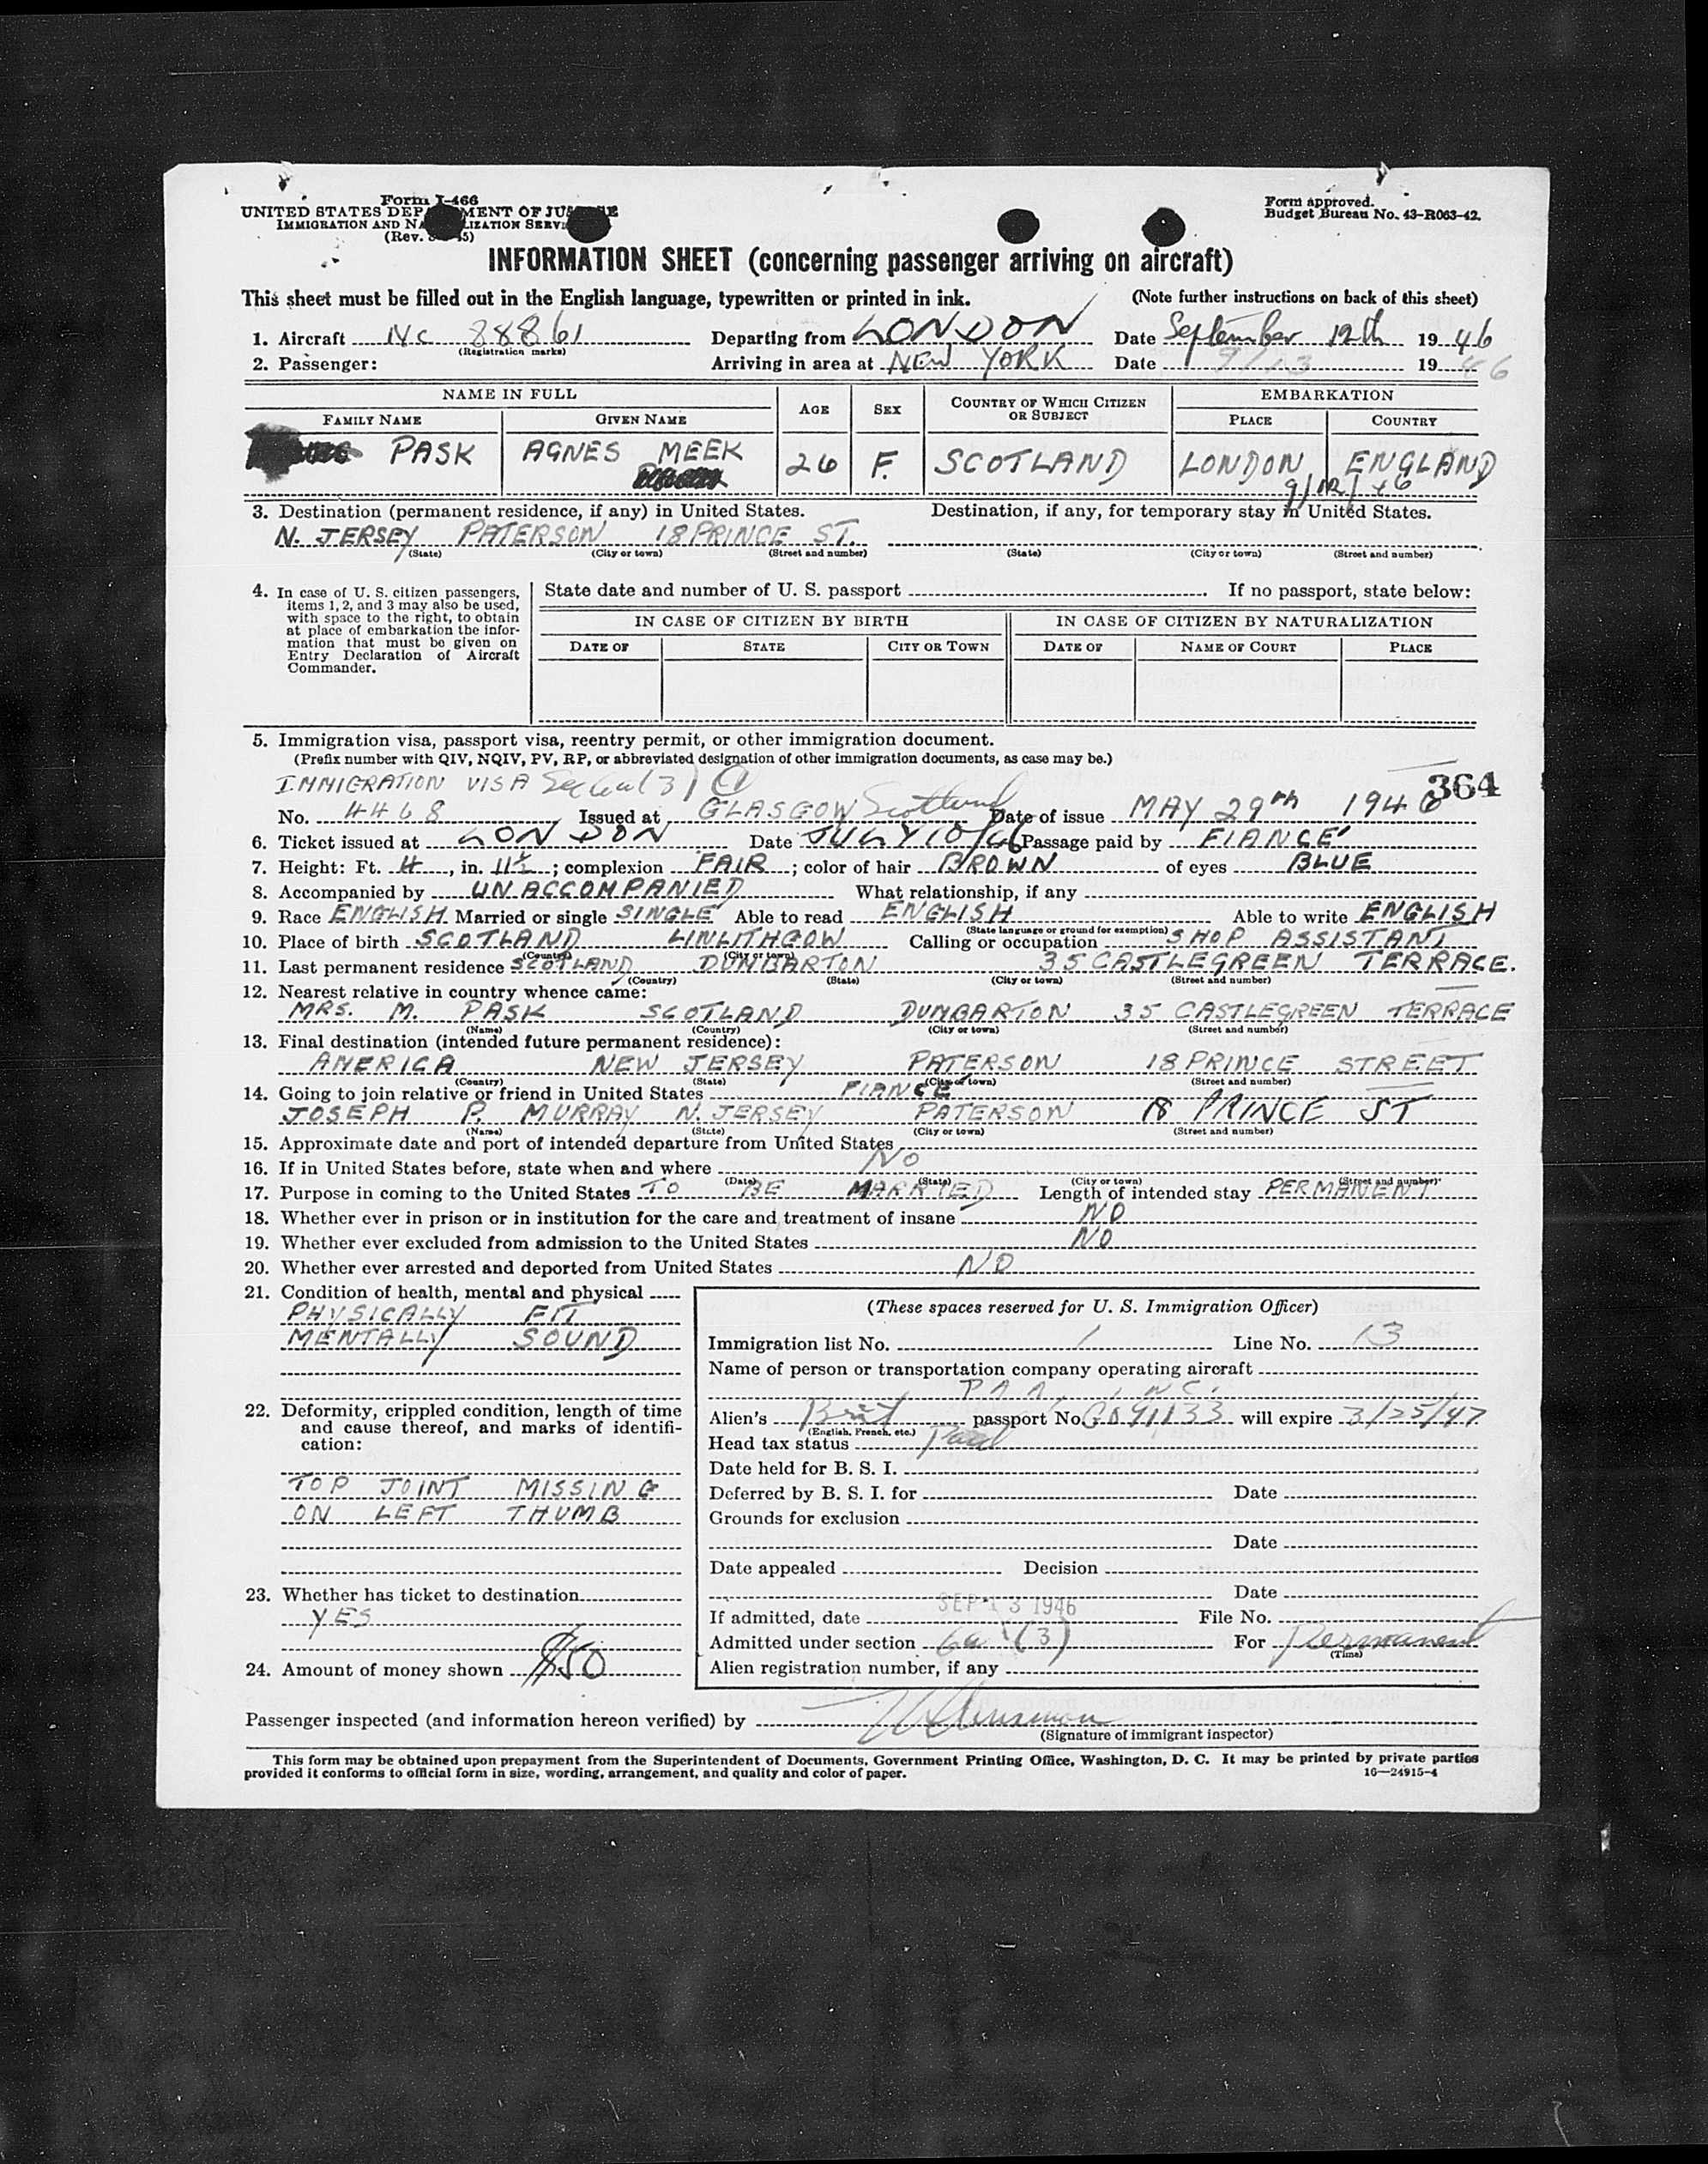 Form I-466
UNITED STATES DEPARTMENT OF JUSTICE
IMMIGRATION AND NATURALIZATION SERVICE
(Rev. 5)
Form approved.
Budget Bureau No. 43-R063-42.
INFORMATION SHEET (concerning passenger arriving on aircraft)
This sheet must be filled out in the English language, typewritten or printed in ink. (Note further instructions on back of this sheet)
1. Aircraft NC 88861 Departing from LONDON Date September 12th 1946
(Registration marks)
2. Passenger: Arriving in area at NEW YORK Date 9/13 1946
NAME IN FULL AGE SEX COUNTRY OF WHICH CITIZEN OR SUBJECT EMBARKATION
FAMILY NAME GIVEN NAME PLACE COUNTRY
PASK AGNES MEEK 26 F. SCOTLAND LONDON ENGLAND
9/12/46
3. Destination (permanent residence, if any) in United States. Destination, if any, for temporary stay in United States.
N. JERSEY PATERSON 18 PRINCE ST.
(State) (City or town) (Street and number) (State) (City or town) (Street and number)
4. In case of U. S. citizen passengers, items 1, 2, and 3 may also be used, with space to the right, to obtain at place of embarkation the information that must be given on Entry Declaration of Aircraft Commander.
State date and number of U. S. passport If no passport, state below:
IN CASE OF CITIZEN BY BIRTH IN CASE OF CITIZEN BY NATURALIZATION
DATE OF STATE CITY OR TOWN DATE OF NAME OF COURT PLACE
5. Immigration visa, passport visa, reentry permit, or other immigration document.
(Prefix number with QIV, NQIV, PV, RP, or abbreviated designation of other immigration documents, as case may be.)
IMMIGRATION VISA 364
No. 4468 Issued at GLASGOW Scotland Date of issue MAY 29th 1946
6. Ticket issued at LONDON Date JULY 10/46 Passage paid by FIANCE'
7. Height: Ft. 4, in. 11½; complexion FAIR; color of hair BROWN of eyes BLUE
8. Accompanied by UNACCOMPANIED What relationship, if any
9. Race ENGLISH Married or single SINGLE Able to read ENGLISH Able to write ENGLISH
(State language or ground for exemption)
10. Place of birth SCOTLAND LINLITHGOW Calling or occupation SHOP ASSISTANT
(Country) (City or town)
11. Last permanent residence SCOTLAND DUMBARTON 35 CASTLEGREEN TERRACE.
(Country) (State) (City or town) (Street and number)
12. Nearest relative in country whence came:
MRS. M. PASK SCOTLAND DUMBARTON 35 CASTLEGREEN TERRACE
(Name) (Country) (City or town) (Street and number)
13. Final destination (intended future permanent residence):
AMERICA NEW JERSEY PATERSON 18 PRINCE STREET
(Country) (State) (City or town) (Street and number)
14. Going to join relative or friend in United States FIANCE
JOSEPH P. MURRAY N. JERSEY PATERSON 18 PRINCE ST
(Name) (State) (City or town) (Street and number)
15. Approximate date and port of intended departure from United States
16. If in United States before, state when and where NO
(Date) (State) (City or town) (Street and number)
17. Purpose in coming to the United States TO BE MARRIED Length of intended stay PERMANENT
18. Whether ever in prison or in institution for the care and treatment of insane NO
19. Whether ever excluded from admission to the United States NO
20. Whether ever arrested and deported from United States NO
21. Condition of health, mental and physical
PHYSICALLY FIT
MENTALLY SOUND
22. Deformity, crippled condition, length of time
and cause thereof, and marks of identifi-
cation:
TOP JOINT MISSING
ON LEFT THUMB
23. Whether has ticket to destination
YES
24. Amount of money shown $50
(These spaces reserved for U. S. Immigration Officer)
Immigration list No. 1 Line No. 13
Name of person or transportation company operating aircraft
PAA, INC.
Alien's Brit passport No. will expire 3/25/47
(English, French, etc.)
Head tax status Paid
Date held for B. S. I.
Deferred by B. S. I. for Date
Grounds for exclusion
Date
Date appealed Decision
Date
If admitted, date SEP 13 1946 File No.
Admitted under section 6a (3) For permanent
(Time)
Alien registration number, if any
Passenger inspected (and information hereon verified) by
(Signature of immigrant inspector)
This form may be obtained upon prepayment from the Superintendent of Documents, Government Printing Office, Washington, D. C. It may be printed by private parties
provided it conforms to official form in size, wording, arrangement, and quality and color of paper. 16—24915-4